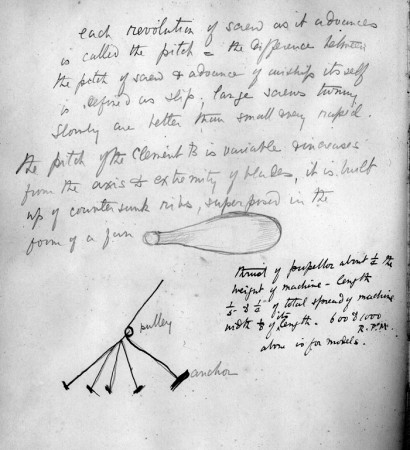 each revolution of screw as it advances
is called the pitch = the difference between
the pitch of screw & advance of airship itself
is defined as slip; large screws turning
slowly are better than small very rapid.
the pitch of the Clement B is variable & increases
from the axis to extremity of blades, it is built
up of countersunk ribs, superposed in the
form of a fan
thrust of propellor about 1/4 the
weight of machine - length
1/5 to 1/6 of total spread of machine
width of length. 600 to 1000
R.P.M.
above is for models.
pulley
anchor